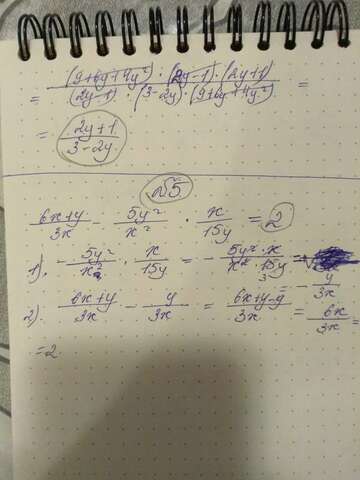 = (9+6y+4y²) · (2y-1) · (2y+1) / (2y-1) · (3-2y) · (9+6y+4y²) =
= 2y+1 / 3-2y
№5.
6x+y / 3x - 5y² / x² · x / 15y = 2
1). - 5y² / x² · x / 15y = - 5y² · x / x² · 15y = - y / 3x
3
2). 6x+y / 3x - y / 3x = 6x+y-y / 3x = 6x / 3x =
= 2